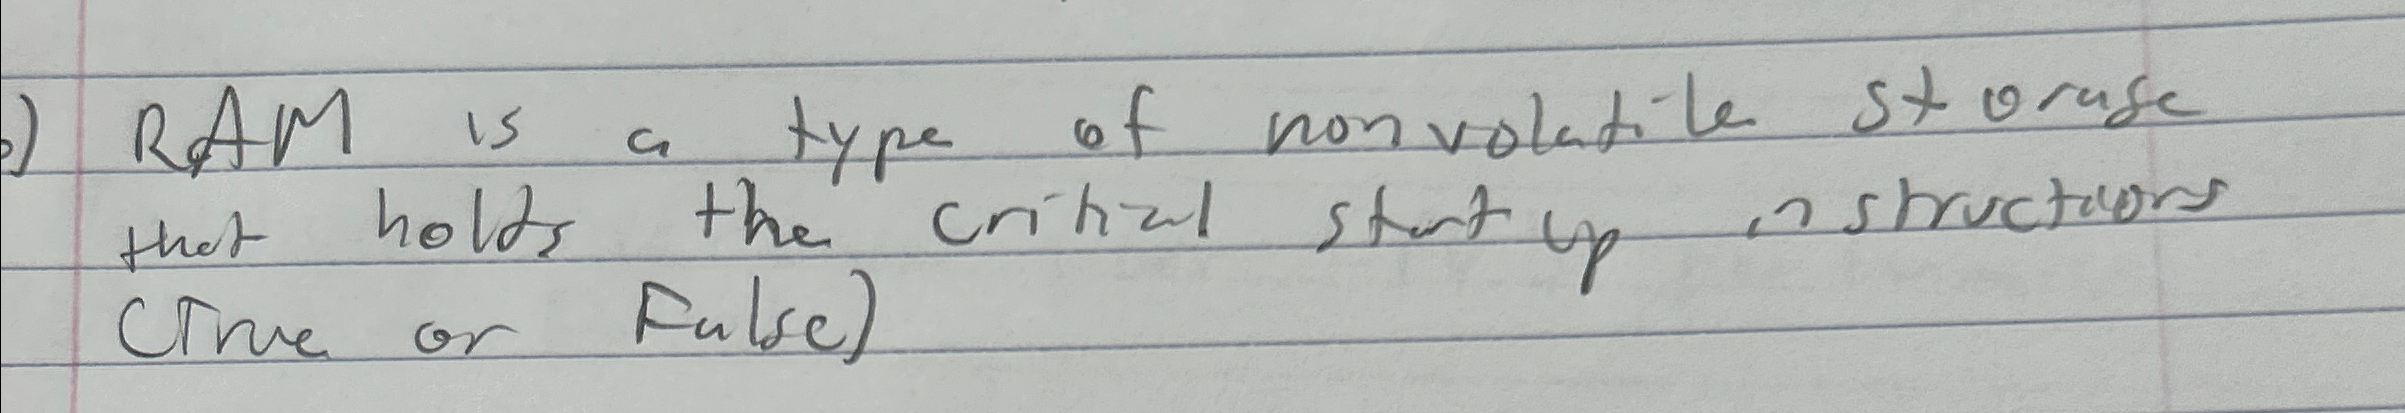 ) RAM is a type of nonvolatile storage
that holds the critical start up instructions
(True or False)